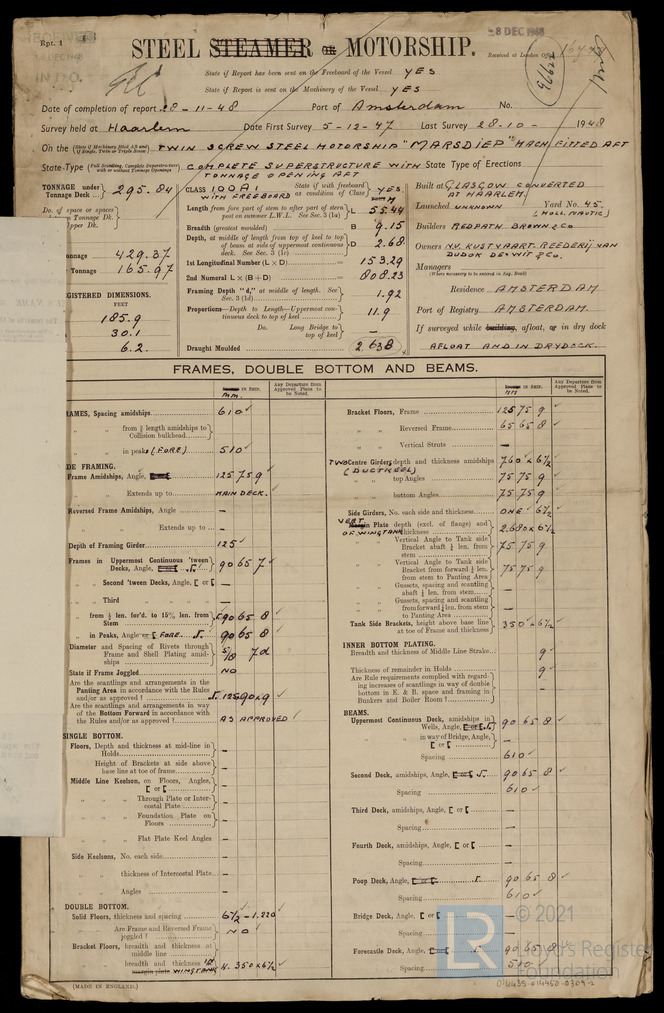 Rpt. 1
8 DEC 1948
STEEL STEAMER OR MOTORSHIP.
Received at London Office
State if Report has been sent on the Freeboard of the Vessel YES
State if Report is sent on the Machinery of the Vessel YES
Date of completion of report 28-11-48 Port of Amsterdam No.
Survey held at Haarlem Date First Survey 5-12-47 Last Survey 28-10- 1948
On the (State if Machinery fitted Aft and if Single, Twin or Triple Screw) TWIN SCREW STEEL MOTORSHIP "MARSDIEP" MACH. FITTED AFT
State Type (Full Scantling, Complete Superstructure with or without Tonnage Openings) COMPLETE SUPERSTRUCTURE WITH TONNAGE OPENING AFT State Type of Erections
TONNAGE under Tonnage Deck 295.84
Do. of space or spaces
429.37
Tonnage 165.97
GISTERED DIMENSIONS.
FEET
185.9
30.1
6.2.
CLASS 100A1 WITH FREEBOARD State if with freeboard as condition of Class YES
Length from fore part of stem to after part of stern post on summer L.W.L. See Sec. 3 (1a) L 55.44
Breadth (greatest moulded) B 9.15
Depth, at middle of length from top of keel to top of beam at side of uppermost continuous deck. See Sec. 3 (1c) D 2.68
1st Longitudinal Number (L × D) 153.29
2nd Numeral L × (B + D) 808.23
Framing Depth "d," at middle of length. See Sec. 3 (1d) 1.92
Proportions—Depth to Length—Uppermost continuous deck to top of keel 11.9
Do. Long Bridge to top of keel —
Draught Moulded 2.638
Built at GLASGOW CONVERTED AT HAARLEM.
Launched UNKNOWN Yard No. 45. (HOLL. NAUTIC)
Builders REDPATH BROWN & CO
Owners N.V. KUSTVAART REEDERIJ VAN DUDOK DE WIT & Co.
Managers
(Where necessary to be entered in Reg. Book)
Residence AMSTERDAM
Port of Registry AMSTERDAM.
If surveyed while building, afloat, or in dry dock
AFLOAT AND IN DRYDOCK.
FRAMES, DOUBLE BOTTOM AND BEAMS.
IN SHIP. MM. Any Departure from Approved Plans to be Noted.
RAMES, Spacing amidships 610
from ⅕ length amidships to Collision bulkhead
in peaks (FORE) 510
DE FRAMING.
Frame Amidships, Angle, 125 75 9
Extends up to MAIN DECK.
Reversed Frame Amidships, Angle —
Extends up to —
Depth of Framing Girder 125
Frames in Uppermost Continuous 'tween Decks, Angle, 90 65 7
Second 'tween Decks, Angle, [ or [ —
Third —
from ⅕ len. for'd. to 15% len. from Stem 90 65 8
in Peaks, Angle or [ FORE 90 65 8
Diameter and Spacing of Rivets through Frame and Shell Plating amidships 5/8 7d
State if Frame Joggled NO
Are the scantlings and arrangements in the Panting Area in accordance with the Rules and/or as approved? 125 90 x 9
Are the scantlings and arrangements in way of the Bottom Forward in accordance with the Rules and/or as approved? AS APPROVED
SINGLE BOTTOM.
Floors, Depth and thickness at mid-line in Holds —
Height of Brackets at side above base line at toe of frame —
Middle Line Keelson, on Floors, Angles, [ or [ —
Through Plate or Intercostal Plate —
Foundation Plate on Floors —
Flat Plate Keel Angles
Side Keelsons, No. each side —
thickness of Intercostal Plate —
Angles —
DOUBLE BOTTOM.
Solid Floors, thickness and spacing 6½ - 1.220
Are Frame and Reversed Frame joggled? NO
Bracket Floors, breadth and thickness at middle line —
breadth and thickness at margin plate WINGTANK 350 x 6½
(MADE IN ENGLAND.)
IN SHIP. MM Any Departure from Approved Plans to be Noted.
Bracket Floors, Frame 125 75 9
Reversed Frame 65 65 8
Vertical Struts —
TWO Centre Girders, depth and thickness amidships (DUCTKEEL) 760 x 6½
top Angles 75 75 9
bottom Angles 75 75 9
Side Girders, No. each side and thickness ONE 6½
VERT. Margin Plate depth (excl. of flange) and thickness OF WINGTANK 2.680 x 6½
Vertical Angle to Tank side Bracket abaft ¼ len. from stem 75 75 9
Vertical Angle to Tank side Bracket from forward ¼ len. from stem to Panting Area 75 75 9
Gussets, spacing and scantling abaft ¼ len. from stem —
Gussets, spacing and scantling from forward ¼ len. from stem to Panting Area —
Tank Side Brackets, height above base line at toe of Frame and thickness 350 x 6½
INNER BOTTOM PLATING.
Breadth and thickness of Middle Line Strake 9
Thickness of remainder in Holds 9
Are Rule requirements complied with regarding increases of scantlings in way of double bottom in E. & B. space and framing in Bunkers and Boiler Room? —
BEAMS.
Uppermost Continuous Deck, amidships in Wells, Angle, [ or [ 90 65 8
in way of Bridge, Angle, [ or [ —
Spacing 610
Second Deck, amidships, Angle, 90 65 8
Spacing 610
Third Deck, amidships, Angle, [ or [ —
Spacing —
Fourth Deck, amidships, Angle, [ or [ —
Spacing —
Poop Deck, Angle, [ or [ 90 65 8
Spacing 610
Bridge Deck, Angle, [ or [ —
Spacing —
Forecastle Deck, Angle, 90 65 8
Spacing 510
LR
© 2021
Lloyd's Register
Foundation
014435-014450-0309-2